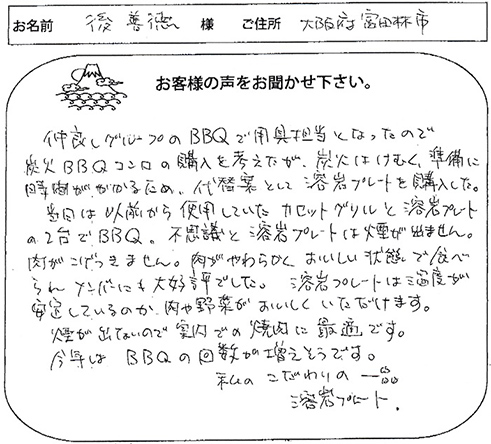 お名前 後 善徳 様 ご住所 大阪府富田林市
お客様の声をお聞かせ下さい。
仲良しグループのBBQで用具担当となったので
炭火BBQコンロの購入を考えたが、炭火はけむく、準備に
時間がかかるため、代替案として溶岩プレートを購入した。
当日は以前から使用していたカセットグリルと溶岩プレート
の2台でBBQ。不思議と溶岩プレートは煙が出ません。
肉がこげつきません。肉がやわらかく おいしい状態で食べ
られ メンバーにも大好評でした。溶岩プレートは温度が
安定しているのか、肉や野菜がおいしくいただけます。
煙が出ないので室内での焼肉に最適です。
今年は BBQの回数が増えそうです。
私の こだわりの 一品
溶岩プレート.